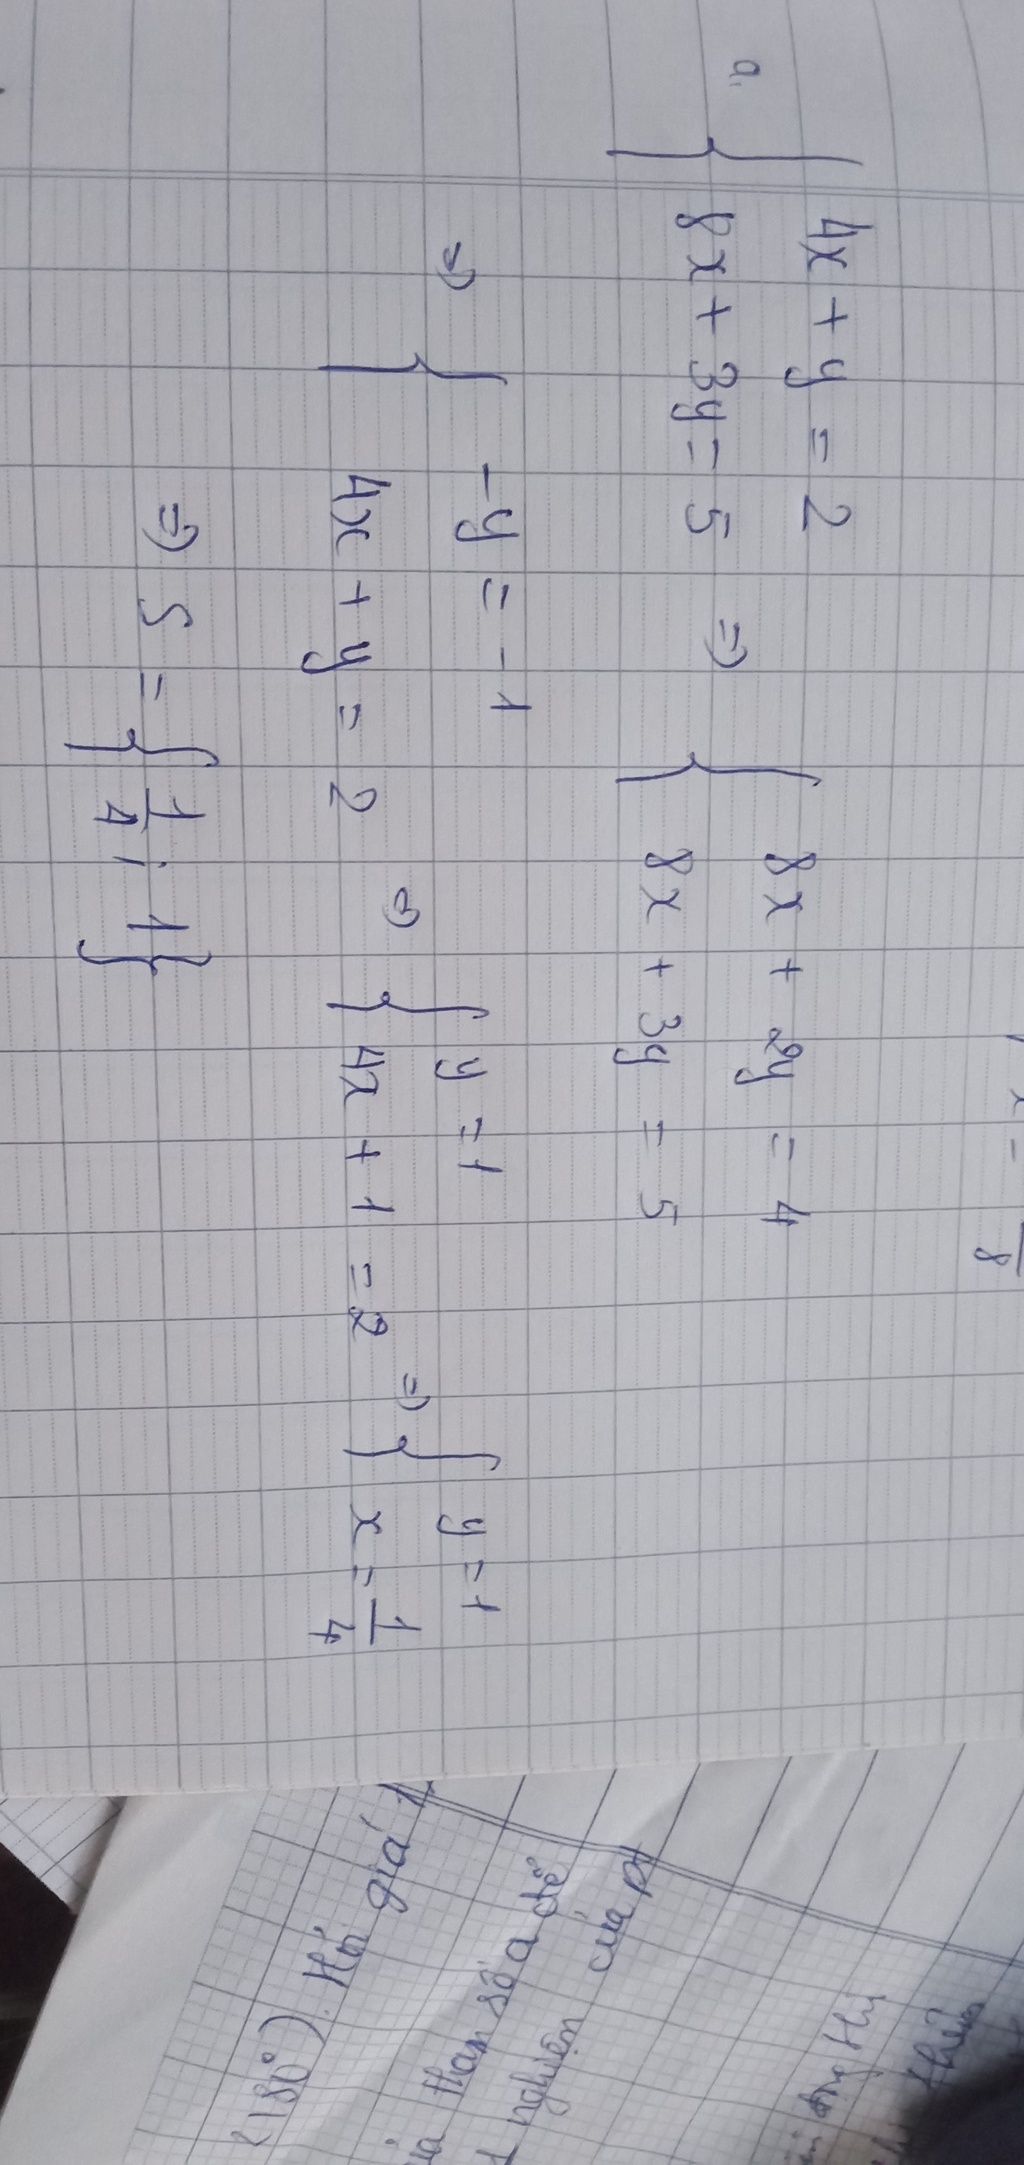 a,
{ 4x + y = 2
8x + 3y = 5
=> { 8x + 2y = 4
8x + 3y = 5
=> { -y = -1
4x + y = 2
=> { y = 1
4x + 1 = 2
=> { y = 1
x = 1/4
=> S = { 1/4 ; 1 }
x =
8
(180°). Hỏi giá
tham số a để
nghiệm của